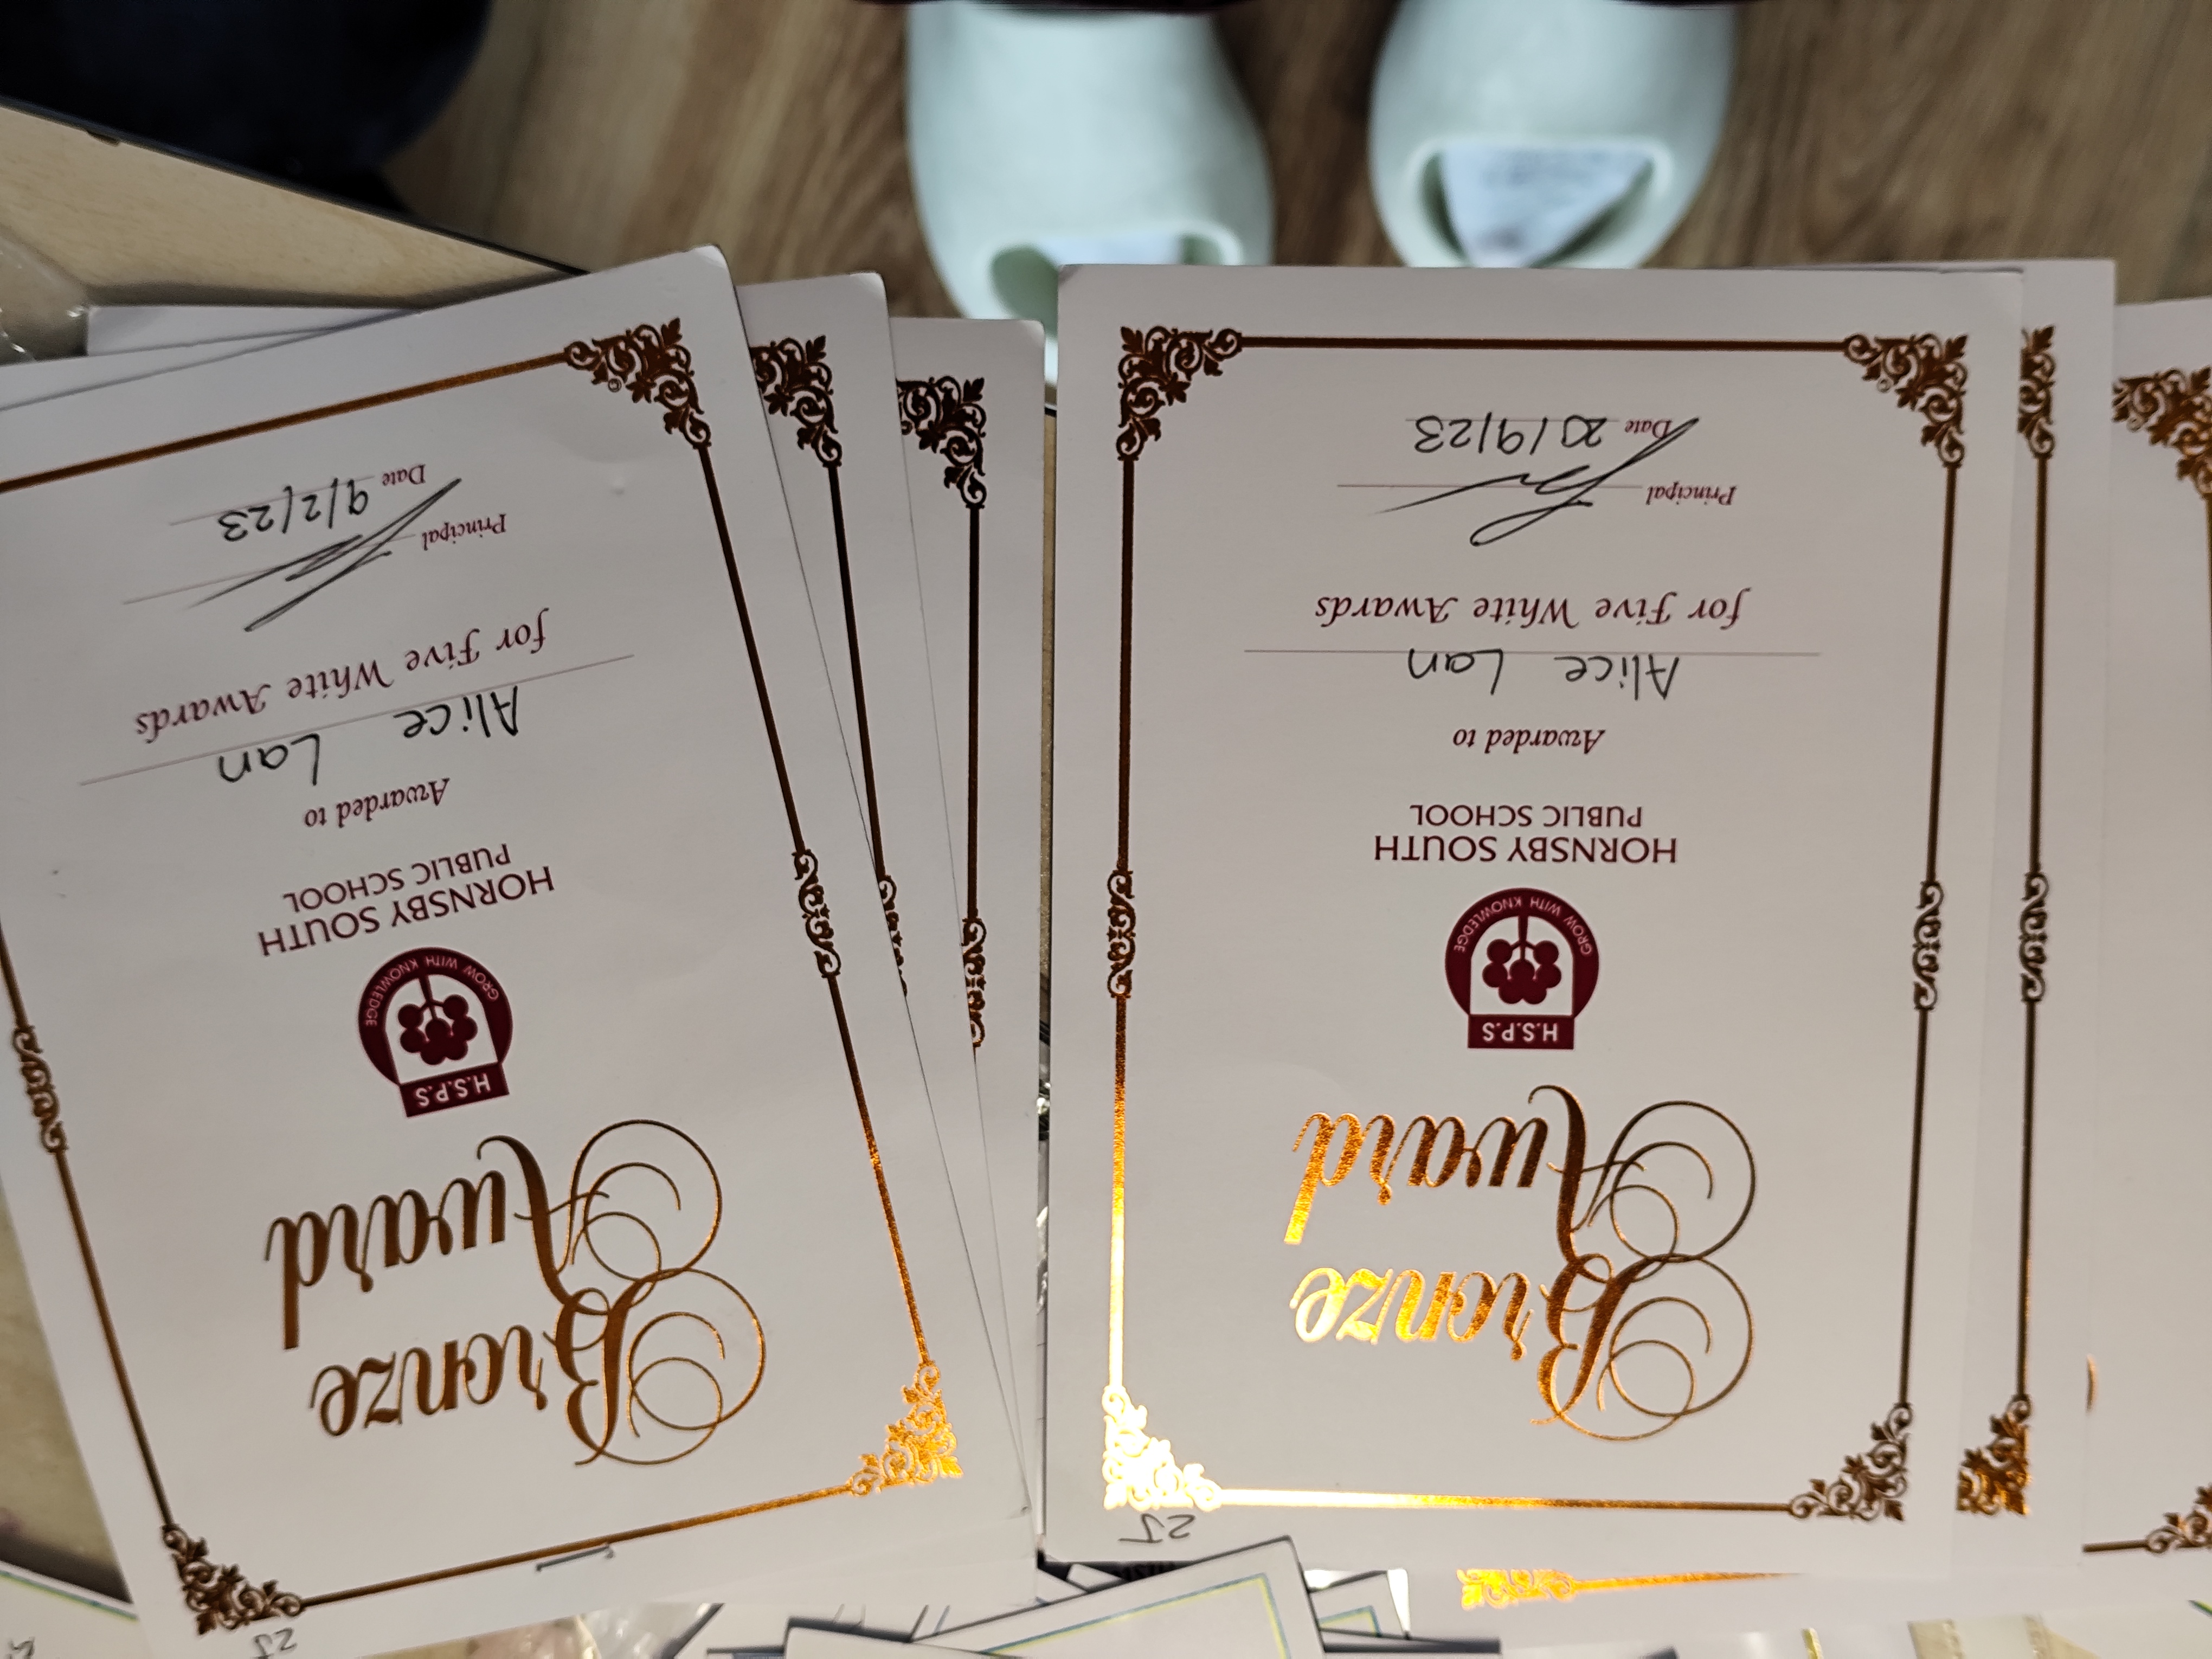 2J
Bronze
Award
H.S.P.S
GROW WITH KNOWLEDGE
HORNSBY SOUTH
PUBLIC SCHOOL
Awarded to
Alice Lan
for Five White Awards
Principal
Date 20/9/23
2J
Bronze
Award
H.S.P.S
GROW WITH KNOWLEDGE
HORNSBY SOUTH
PUBLIC SCHOOL
Awarded to
Alice Lan
for Five White Awards
Principal
Date 9/2/23